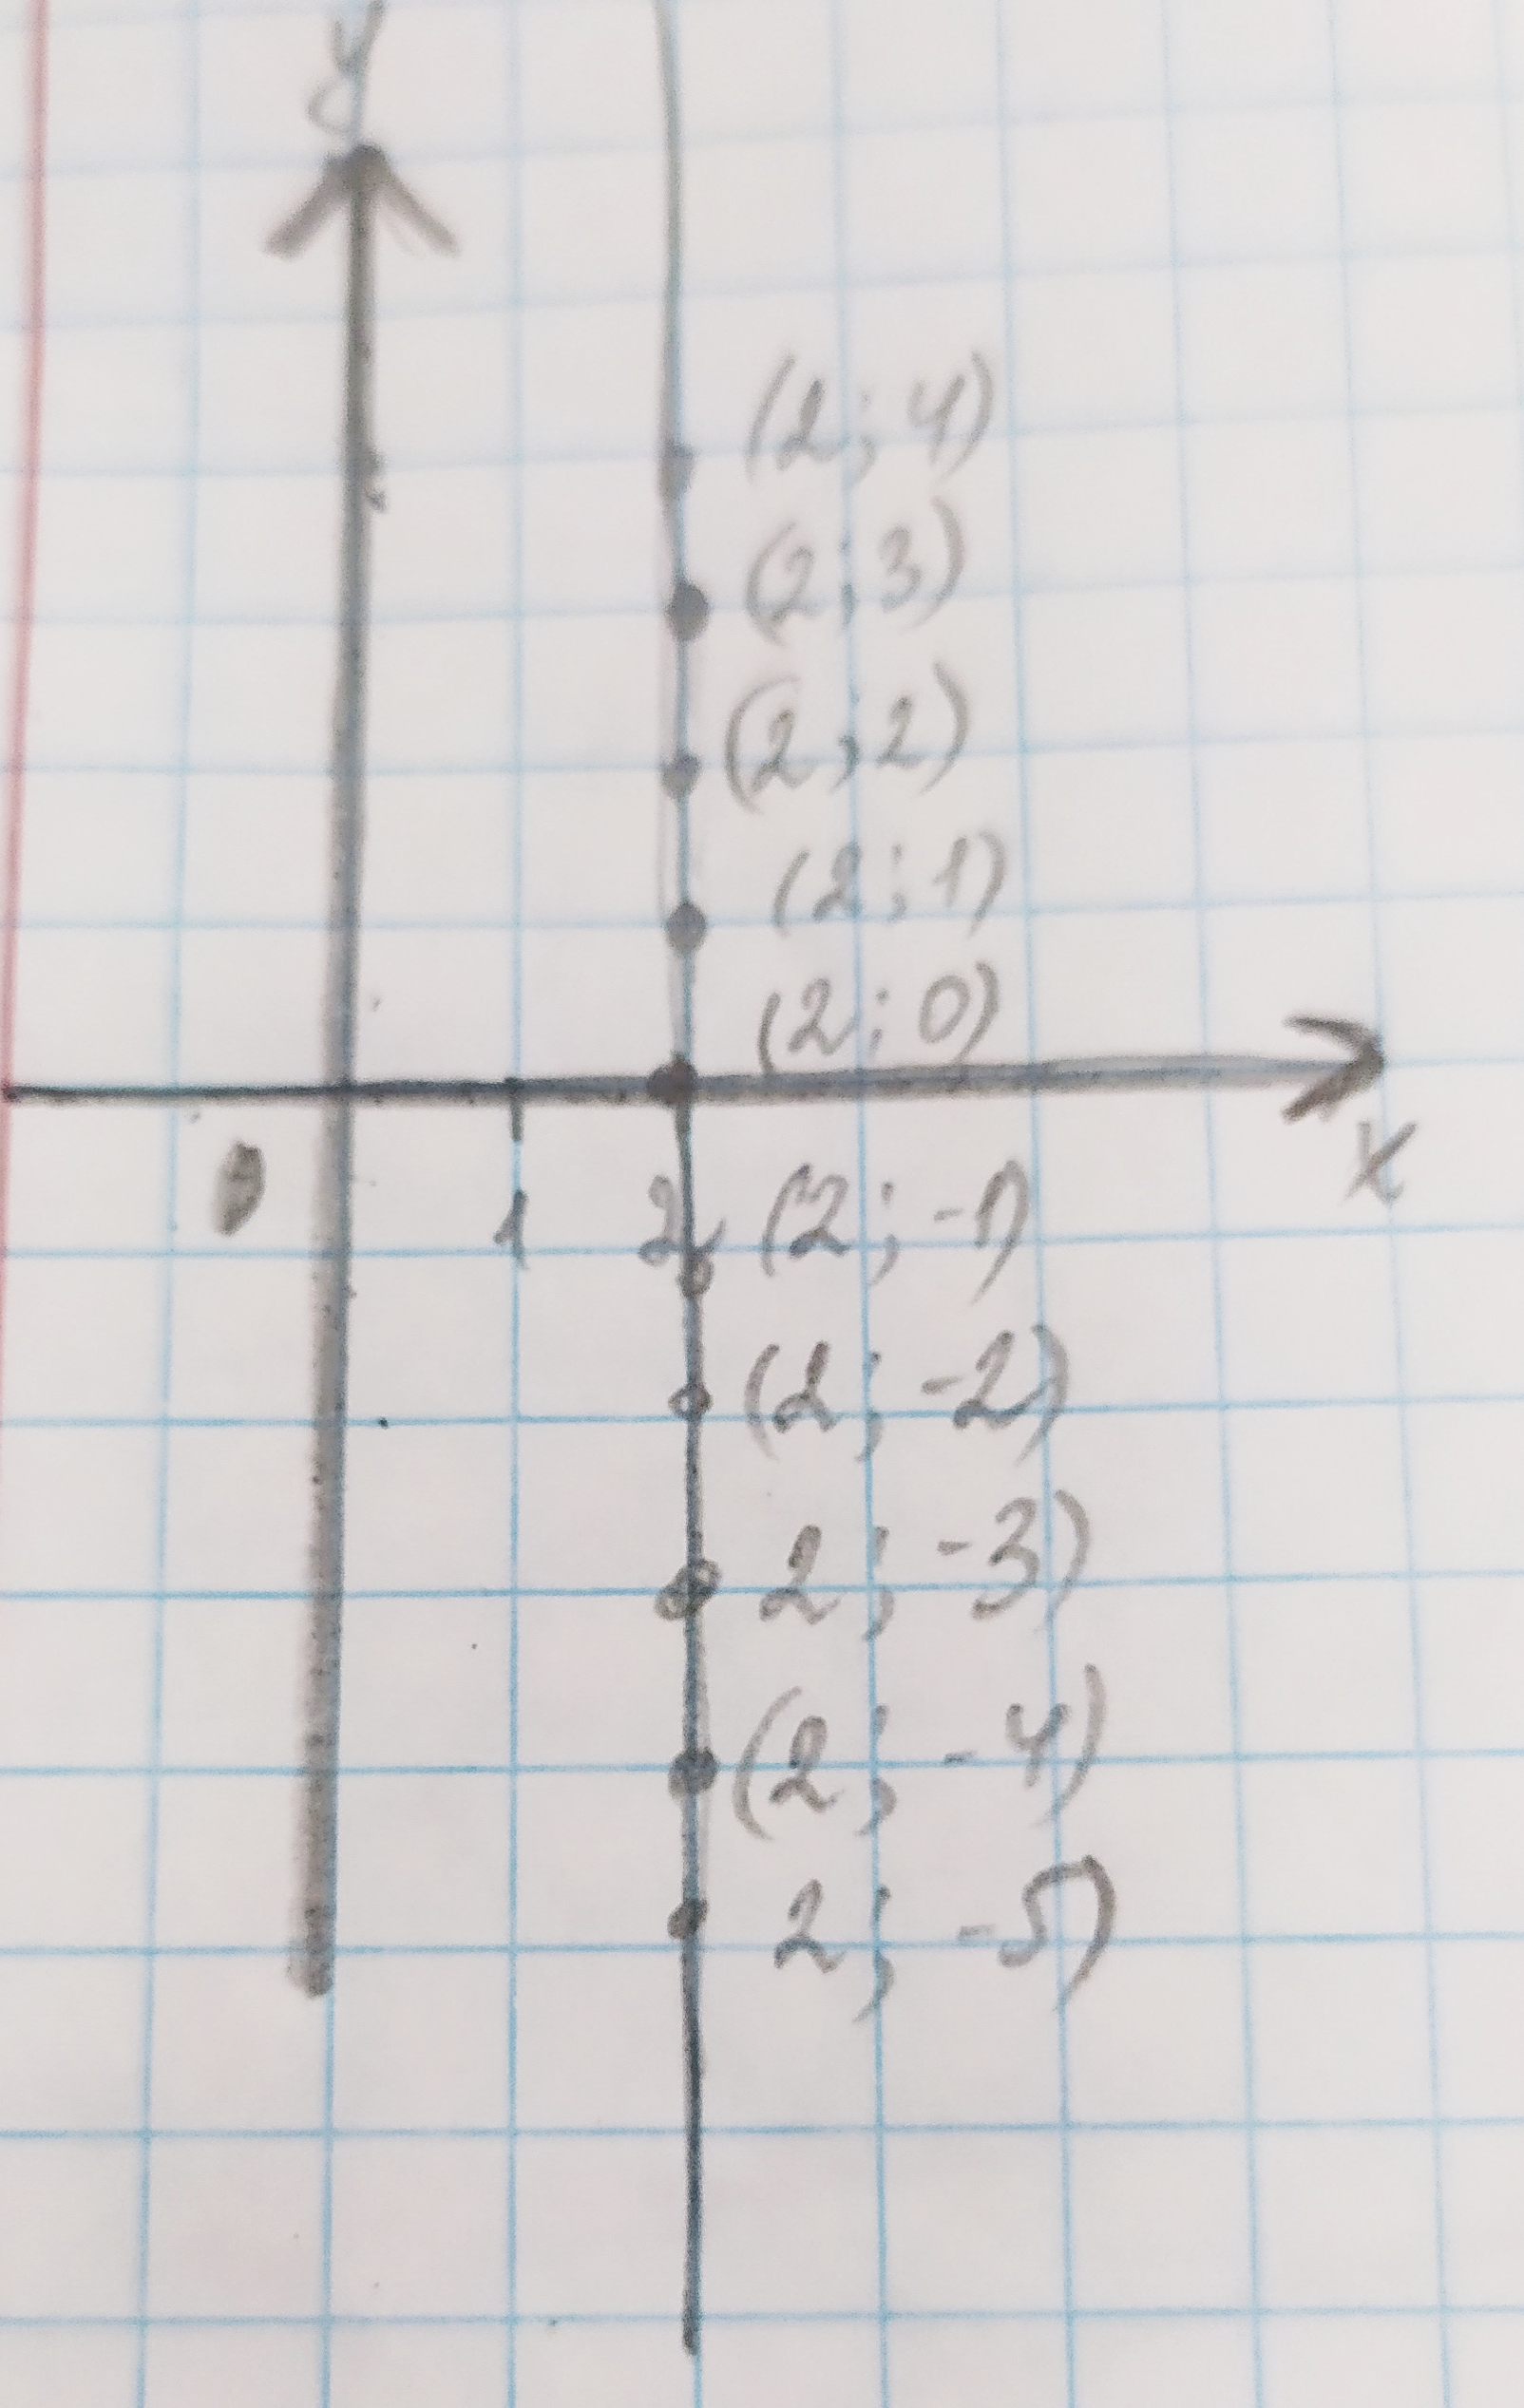 y
(2; 4)
(2; 3)
(2; 2)
(2; 1)
(2; 0)
x
0 1 2 (2; -1)
(2; -2)
2; -3)
(2; -4)
2; -5)